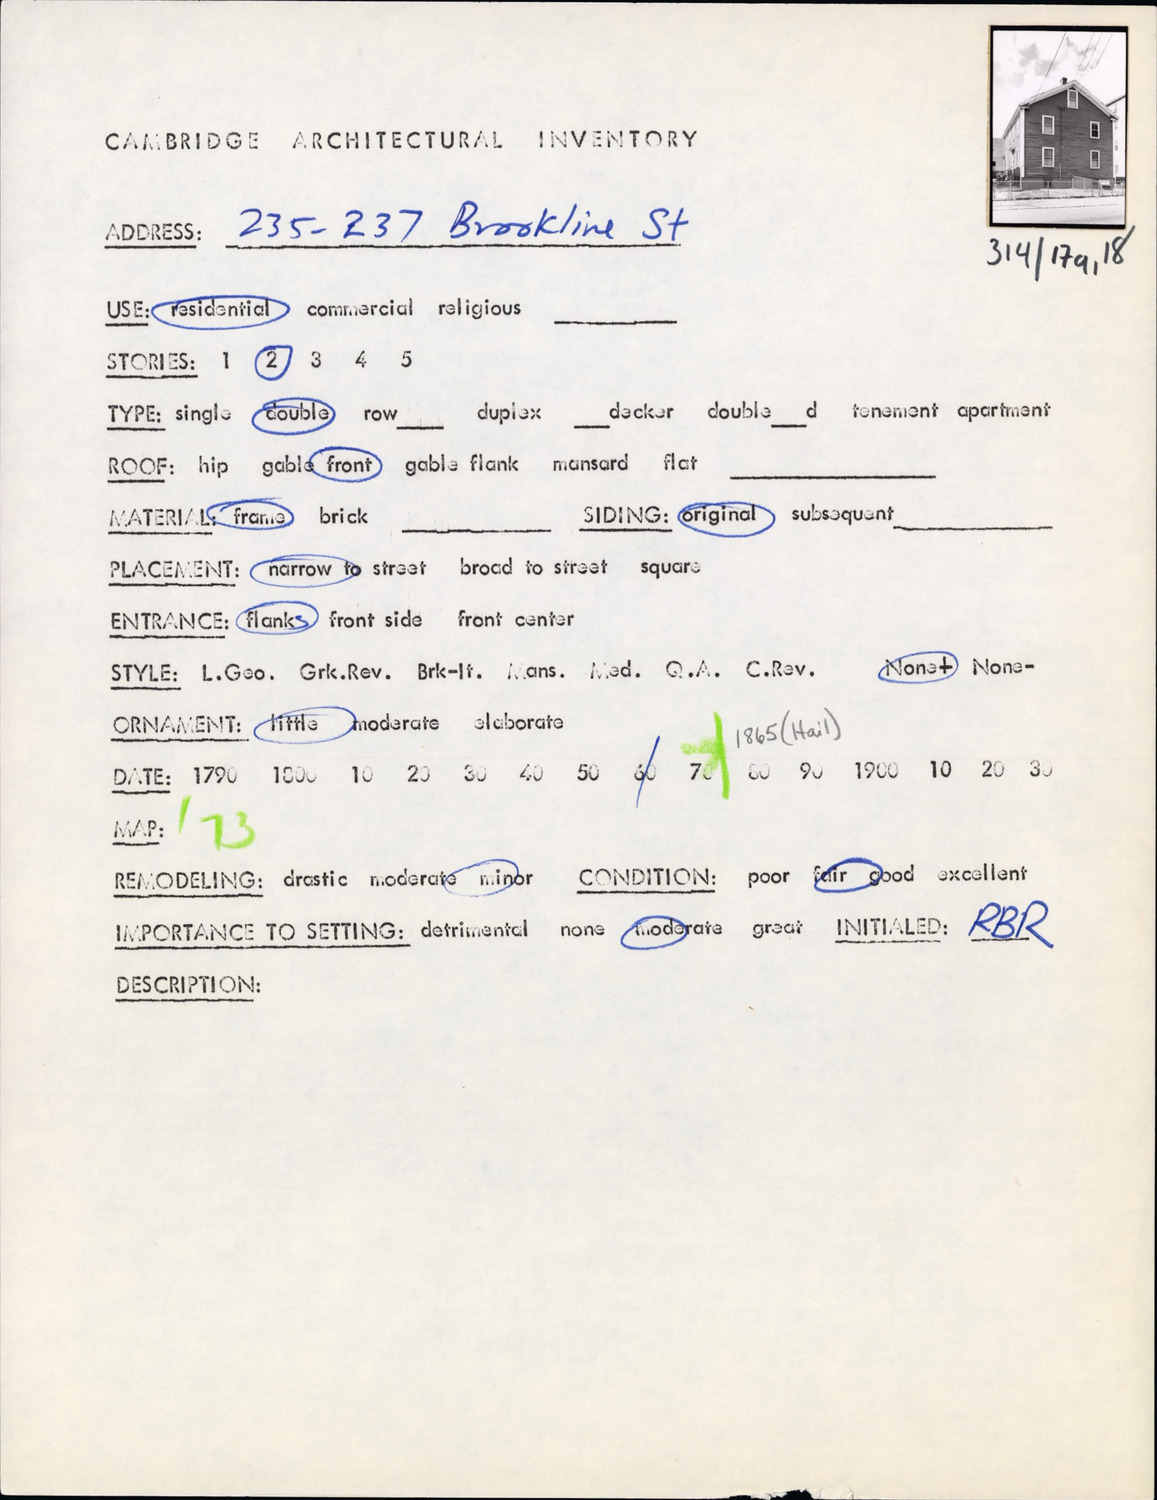 CAMBRIDGE ARCHITECTURAL INVENTORY
ADDRESS: 235-237 Brookline St
314/17a,18
USE: residential commercial religious
STORIES: 1 2 3 4 5
TYPE: single double row___ duplex ___decker double___d tenement apartment
ROOF: hip gable front gable flank mansard flat
MATERIAL: frame brick SIDING: original subsequent
PLACEMENT: narrow to street broad to street square
ENTRANCE: flanks front side front center
STYLE: L.Geo. Grk.Rev. Brk-It. Mans. Med. Q.A. C.Rev. None+ None-
ORNAMENT: little moderate elaborate
1865 (Hail)
DATE: 1790 1800 10 20 30 40 50 60 70 80 90 1900 10 20 30
MAP: '73
REMODELING: drastic moderate minor CONDITION: poor fair good excellent
IMPORTANCE TO SETTING: detrimental none moderate great INITIALED: RBR
DESCRIPTION: